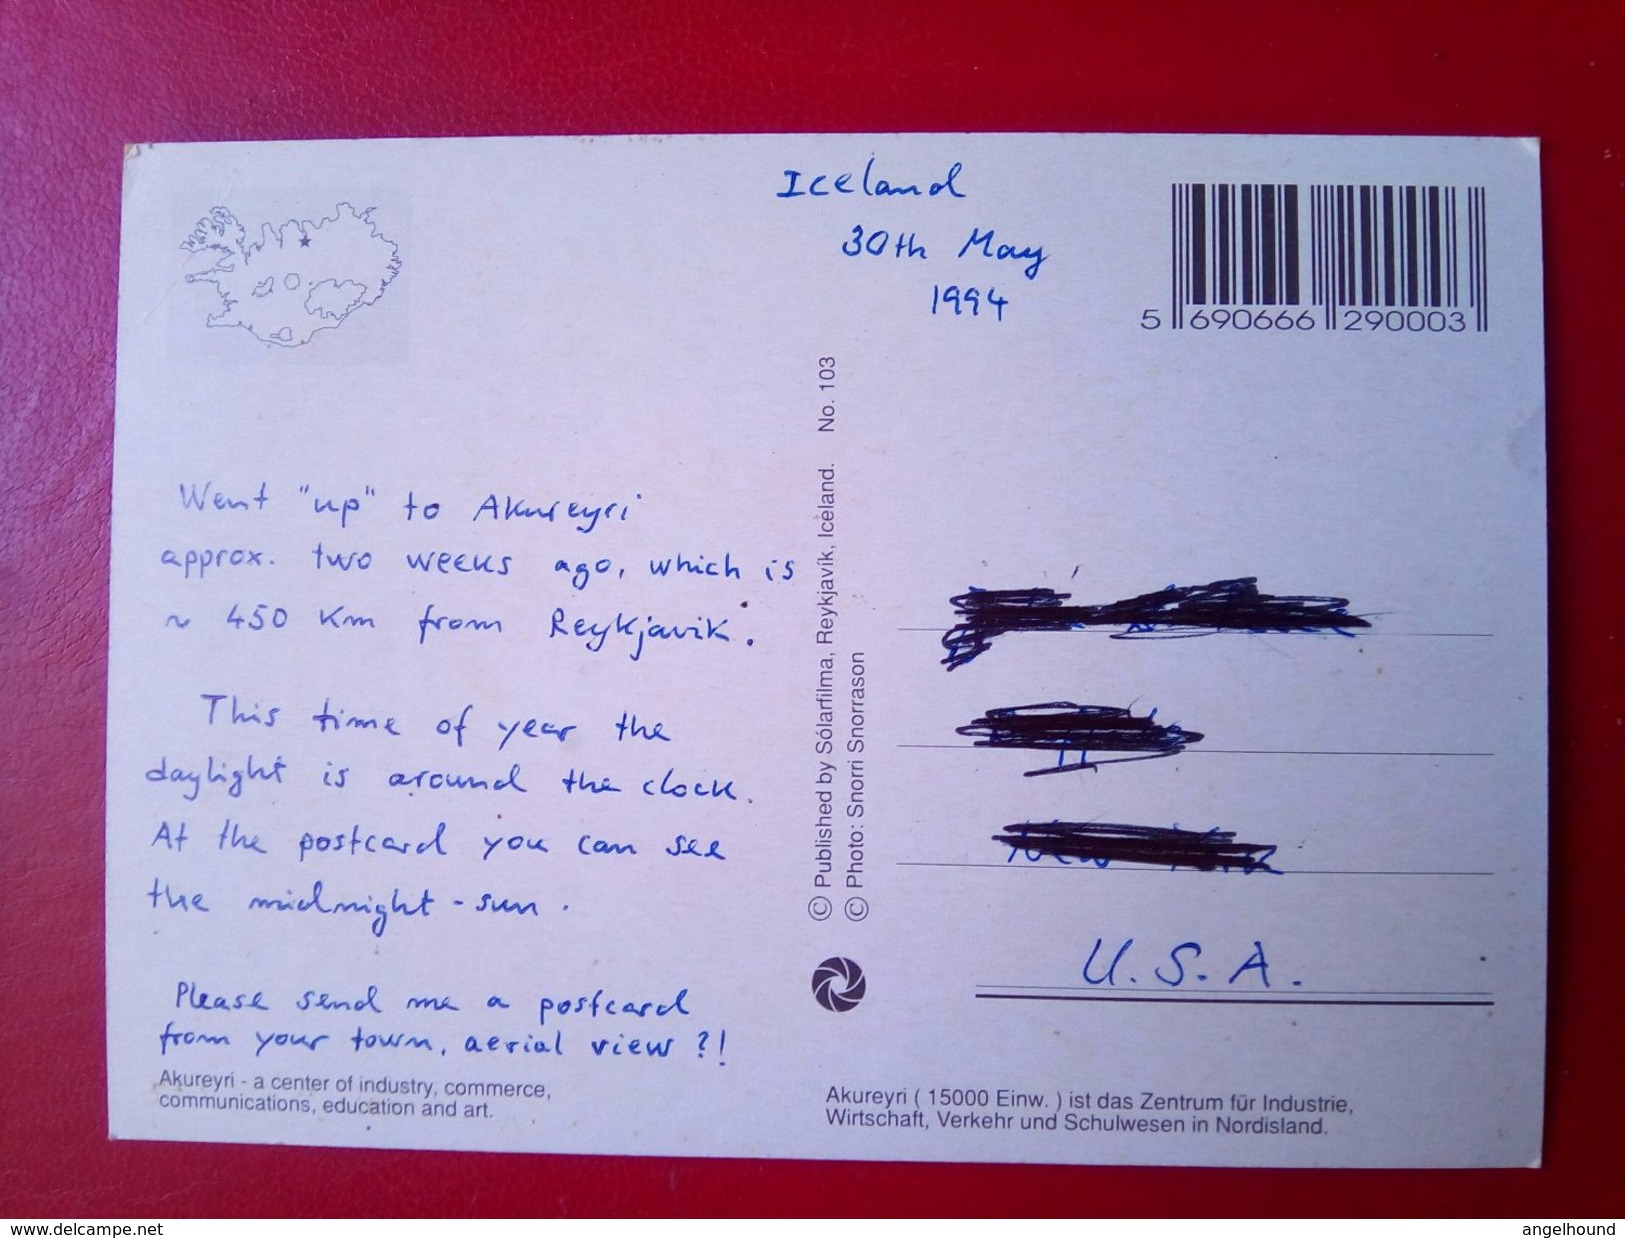 Iceland
30th May
1994
5 690666 290003
Went "up" to Akureyri
approx. two weeks ago, which is
~ 450 km from Reykjavik.
This time of year the
daylight is around the clock.
At the postcard you can see
the midnight-sun.
Please send me a postcard
from your town, aerial view ?!
Akureyri - a center of industry, commerce,
communications, education and art.
© Published by Sólarfilma, Reykjavík, Iceland. No. 103
© Photo: Snorri Snorrason
U.S.A.
Akureyri ( 15000 Einw. ) ist das Zentrum für Industrie,
Wirtschaft, Verkehr und Schulwesen in Nordisland.
www.delcampe.net
angelhound